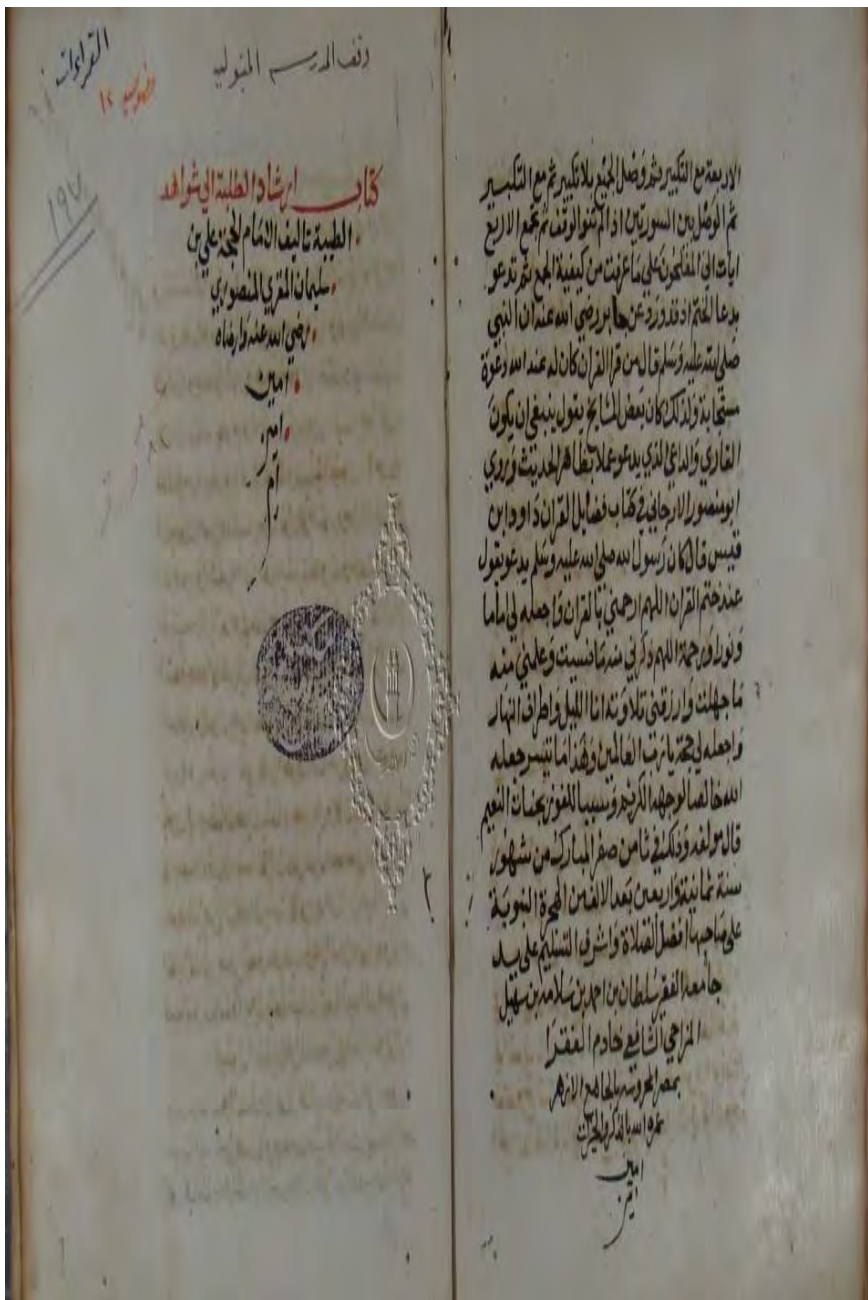 الاربعة مع التكبير ثم وصل الجميع بلا تكبير ثم مع التكبير
ثم الوصل بين السورتين اذا لم تنو الوقف ثم تجمع الاربع
ايات الى المفلحون على ما عرفت من كيفية الجمع ثم تدعو
بدعا الختم اذ قد ورد عن جابر رضي الله عنه ان النبي
صلى الله عليه وسلم قال من قرا القران كان له عند الله دعوة
مستجابة ولذلك كان بعض المشايخ يقول ينبغي ان يكون
القاري والداعي الذي يدعو عملا بظاهر الحديث وروي
ابو منصور الارجاني في كتاب فضايل القران داود ابن
قيس قال كان رسول الله صلى الله عليه وسلم يدعو يقول
عند ختم القران اللهم ارحمني بالقران واجعله لي اماما
ونورا ورحمة اللهم ذكرني منه ما نسيت وعلمني منه
ما جهلت وارزقني تلاوته انا الليل واطراف النهار
واجعله لي حجة يا رب العالمين وهذا ما تيسر جعله
الله خالصا لوجهه الكريم وسببا للفوز بجنات النعيم
قال مولفه وذلك في ثامن صفر المبارك من شهور
سنة ثمانية واربعين بعد الالف من الهجرة النبوية
على صاحبها افضل الصلاة واشرف التسليم على يد
جامعه الفقير سلطان بن احمد بن سلامه بن سهيل
المزاحي الشافعي خادم الفقرا
بمصر المحروسه بالجامع الازهر
عمره الله بالذكر
امين
امين
القراءات
وقف المدرسه المتبوليه
١٩٧
كتاب ارشاد الطلبة الى شواهد
الطيبة تاليف الامام الحجة علي بن
سليمان المقري المنصوري
رضي الله عنه وارضاه
امين
امين
ام